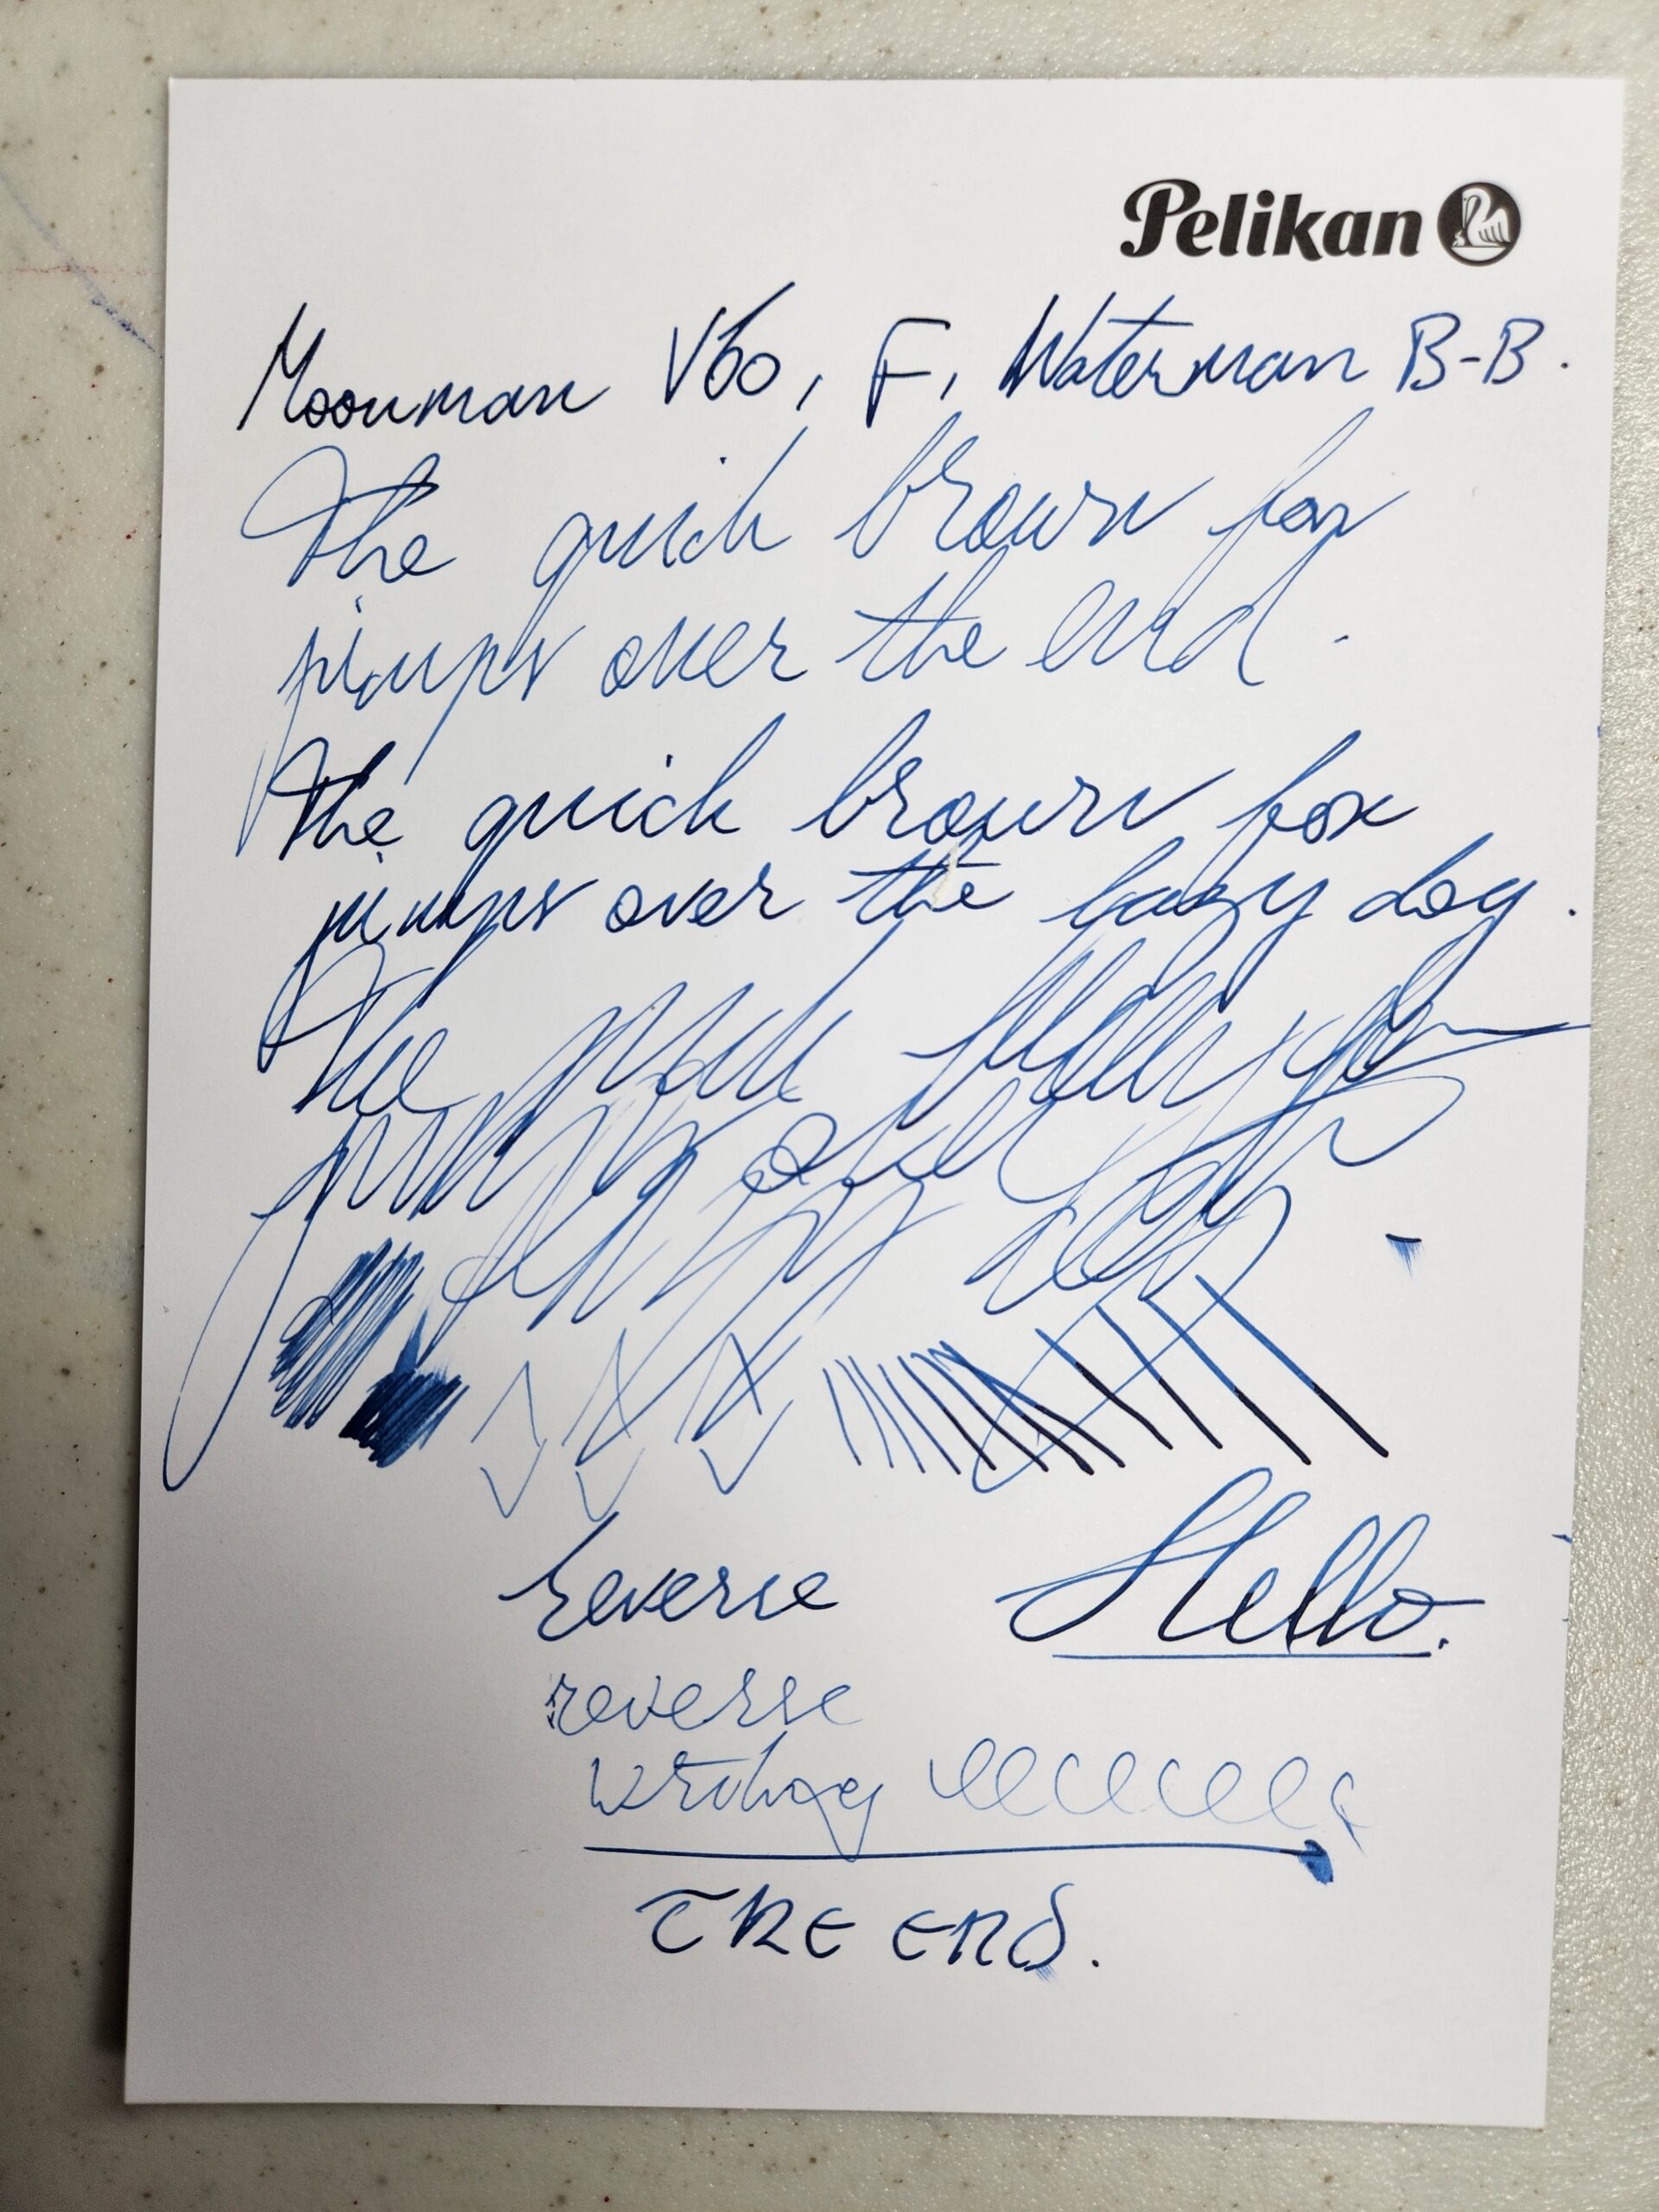 Pelikan
Moonman V60, F, Waterman B-B.
The quick brown fox
jumps over the end.
The quick brown fox
jumps over the lazy dog.
The quick
jumps over
Reverse Hello.
reverse
writing
THE END.